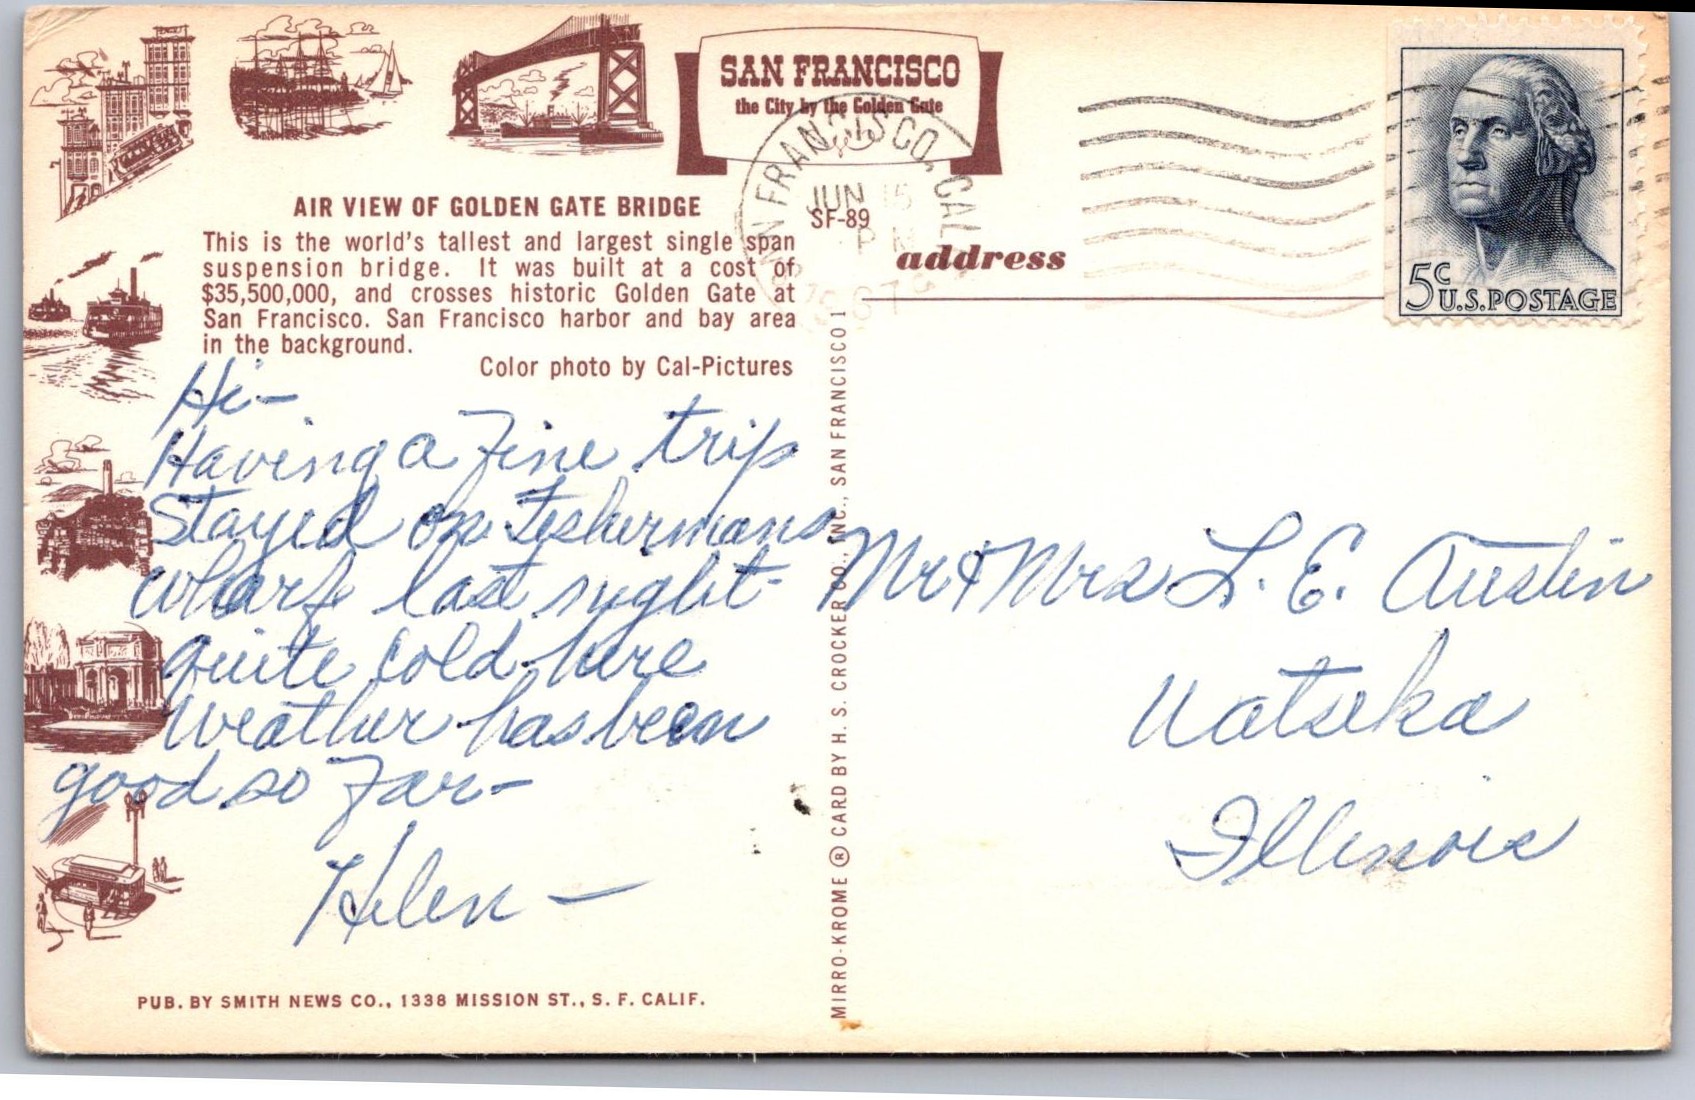 SAN FRANCISCO
the City by the Golden Gate
SAN FRANCISCO, CAL
JUN 15
PM
5c U.S. POSTAGE
AIR VIEW OF GOLDEN GATE BRIDGE
SF-89
This is the world's tallest and largest single span
suspension bridge. It was built at a cost of
$35,500,000, and crosses historic Golden Gate at
San Francisco. San Francisco harbor and bay area
in the background.
Color photo by Cal-Pictures
address
Hi—
Having a fine trip
Stayed on Fishermans
Wharf last night-
quite cold here
Weather has been
good so far—
Helen—
PUB. BY SMITH NEWS CO., 1338 MISSION ST., S. F. CALIF.
MIRRO-KROME ® CARD BY H. S. CROCKER CO., INC., SAN FRANCISCO 1
Mr & Mrs L. E. Austin
Watseka
Illinois